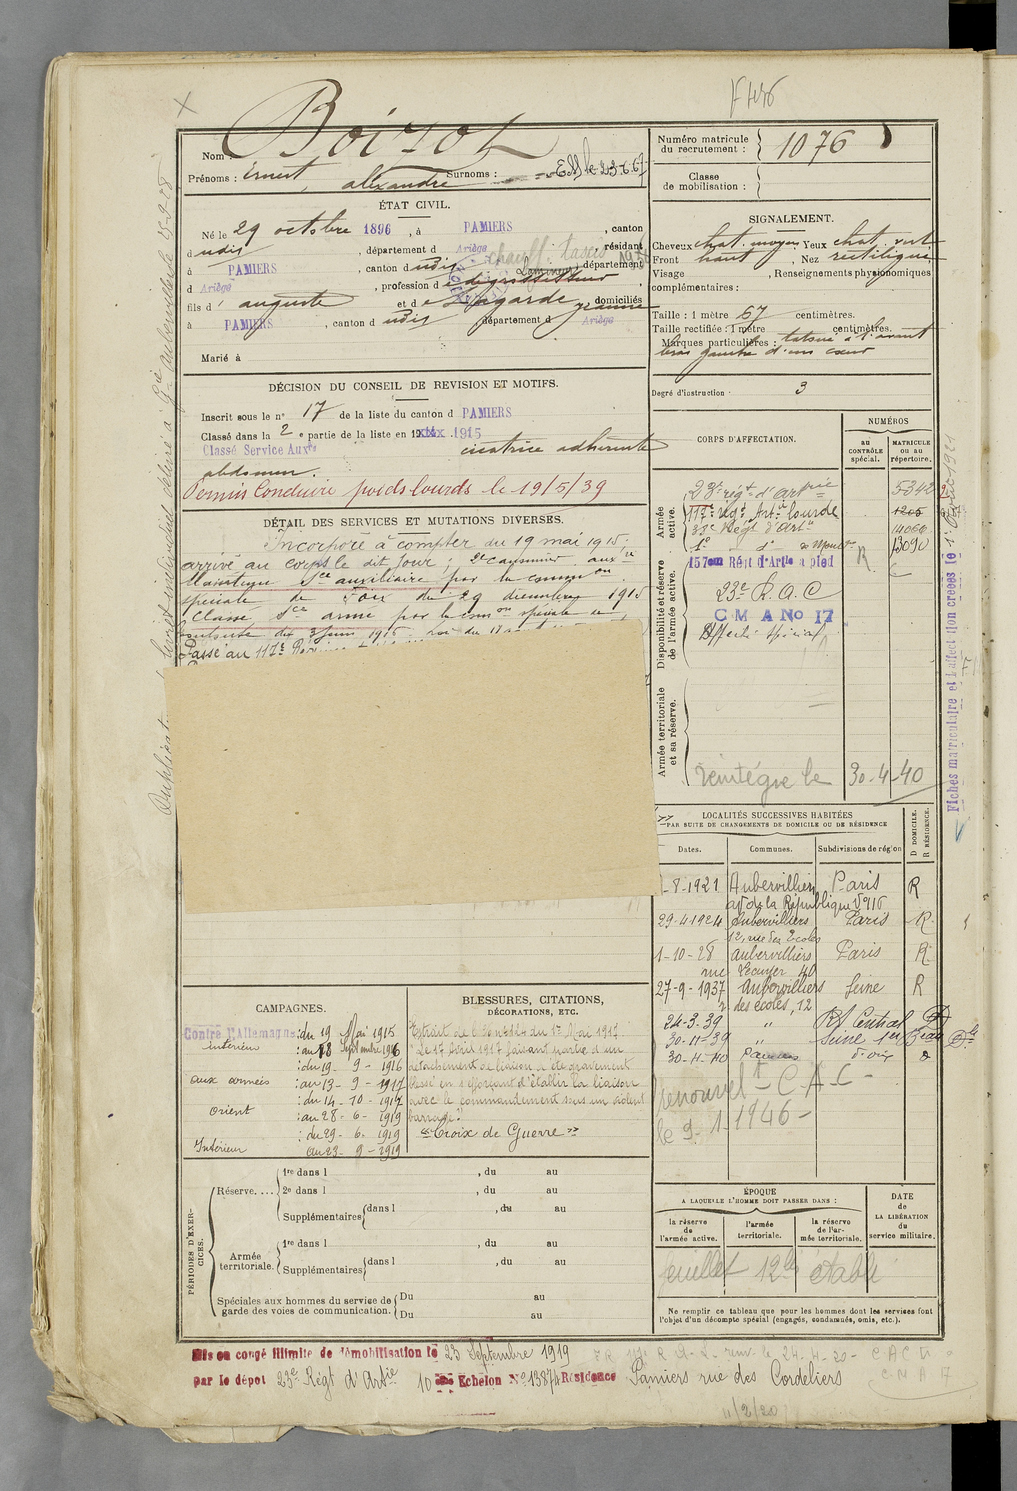 F 456
Nom : Boizot
Prénoms : Ernest, alexandre Surnoms :
Numéro matricule du recrutement : 1076
Classe de mobilisation :
ÉTAT CIVIL.
Né le 29 octobre 1896, à PAMIERS, canton
dudit, département d Ariège, résidant
à PAMIERS, canton dudit, département
d Ariège, profession de dégrossisseur
fils d'auguste et de Lagarde Jeanne, domiciliés
à PAMIERS, canton dudit département d Ariège
Marié à
SIGNALEMENT.
Cheveux chat. moyen Yeux chat. vert
Front haut, Nez rectiligne
Visage, Renseignements physionomiques
complémentaires :
Taille : 1 mètre 67 centimètres.
Taille rectifiée : 1 mètre centimètres.
Marques particulières : tatoué à l'avant
bras gauche d'un cœur
Degré d'instruction : 3
DÉCISION DU CONSEIL DE REVISION ET MOTIFS.
Inscrit sous le n° 17 de la liste du canton d PAMIERS
Classé dans la 2e partie de la liste en 1915
Classé Service Auxre cicatrice adhérente
abdomen.
Permis Conduire poids lourds le 19/5/39
DÉTAIL DES SERVICES ET MUTATIONS DIVERSES.
Incorporé à compter du 19 mai 1915.
arrivé au corps le dit jour, 2e canonnier auxre
Maintenu Sce auxiliaire par la common
spéciale de Foix du 29 décembre 1915
Classé Sce armé par la com on spéciale
du 3 juin 1916
Passé au 117e
CORPS D'AFFECTATION.
NUMÉROS
au CONTRÔLE spécial.
MATRICULE ou au répertoire.
Armée active.
23e régt d'artrie 5342
117e régt Artie lourde 1206
Régt d'Artie 14066
13090
157eme Régt d'Artie à pied
Disponibilité et réserve de l'armée active.
23e R. A. C
C M A No 17
Affectn spécial
Armée territoriale et sa réserve.
réintégré le 30-4-40
Fiches matriculaire et d'affection créées le
LOCALITÉS SUCCESSIVES HABITÉES
PAR SUITE DE CHANGEMENTS DE DOMICILE OU DE RÉSIDENCE
Dates. Communes. Subdivisions de région D DOMICILE. R RÉSIDENCE.
-8-1921 Aubervilliers Paris R
av de la République N° 116
29-4-1924 Aubervilliers Paris R
12, rue des Ecoles
1-10-28 Aubervilliers Paris R
rue Lécuyer 40
27-9-1937 Aubervilliers Seine R
r des écoles, 12
24-3-39 " Rt Central D
30-11-39 " Seine 1er Beau
30-11-40 Pamiers Foix D
Renouvelt C A C
le 9-1-1946
CAMPAGNES.
Contre l'Allemagne : du 19 Mai 1915
intérieur : au 18 Septembre 1916
: du 19 - 9 - 1916
aux armées : au 13 - 9 - 1917
: du 14 - 10 - 1917
Orient : au 28 - 6 - 1919
: du 29 - 6 - 1919
Intérieur au 23 - 9 - 1919
BLESSURES, CITATIONS,
DÉCORATIONS, ETC.
Extrait de l'ordre du 1er Mai 1917
"Le 17 Avril 1917 faisant partie d'un
détachement de liaison a été gravement
blessé en s'efforçant d'établir la liaison
avec le commandement sous un violent
barrage".
"Croix de Guerre"
PÉRIODES D'EXERCICES.
Réserve.... 1re dans l, du au
2e dans l, du au
Supplémentaires dans l, du au
Armée territoriale. 1re dans l, du au
Supplémentaires dans l, du au
Spéciales aux hommes du service de garde des voies de communication. Du au
Du au
ÉPOQUE
A LAQUELLE L'HOMME DOIT PASSER DANS :
la réserve de l'armée active.
l'armée territoriale.
la réserve de l'armée territoriale.
DATE de LA LIBÉRATION du service militaire.
feuillet 12 établi
Ne remplir ce tableau que pour les hommes dont les services font
l'objet d'un décompte spécial (engagés, condamnés, omis, etc.).
Mis en congé illimité de démobilisation le 23 Septembre 1919
par le dépot 23e Régt d'Artie 10 eme Echelon No 13874 Résidence Pamiers rue des Cordeliers
C M A 17
11/2/20